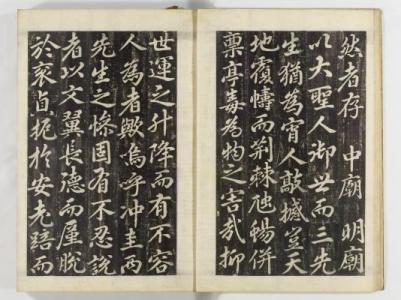 然者存 中廟 明廟
以大聖人御世而三先
生猶爲宵人敲撼豈天
地覆幬而荊棘虺蜴併
稟亭毒爲物之害哉抑
世運之升降而有不容
人爲者歟嗚呼冲圭兩
先生之條固有不忍說
者以文翼長德而屢脫
於袞貞扼於安老踣而